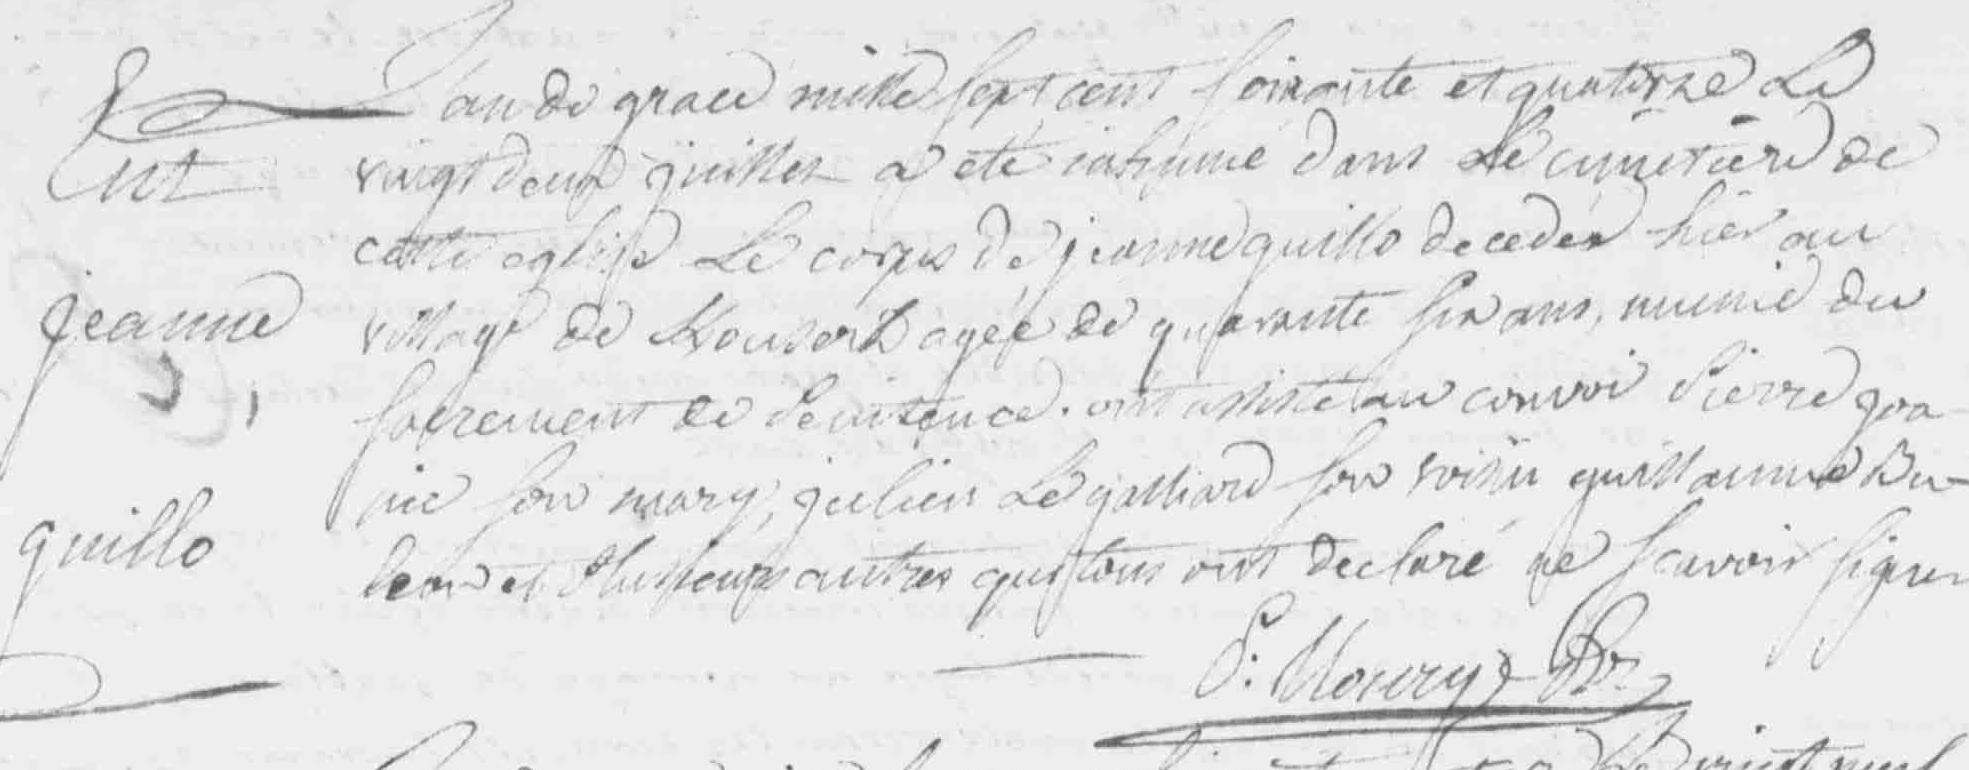 Ent
jeanne
guillo
L'an de grace mille sept cent soixante et quatorze Le
vingt deux juillet a eté inhumé dans Le cimetiere de
cette eglise Le corps de jeanne guillo decedée hier au
village de agée de quarante six ans, munie du
sacrement de Penitence. ont assisté au convoi Pierre
son mary, julien Le galliard son voisin guillaume Bu-
et Plusieurs autres qui tous ont declaré ne scavoir signer
P: